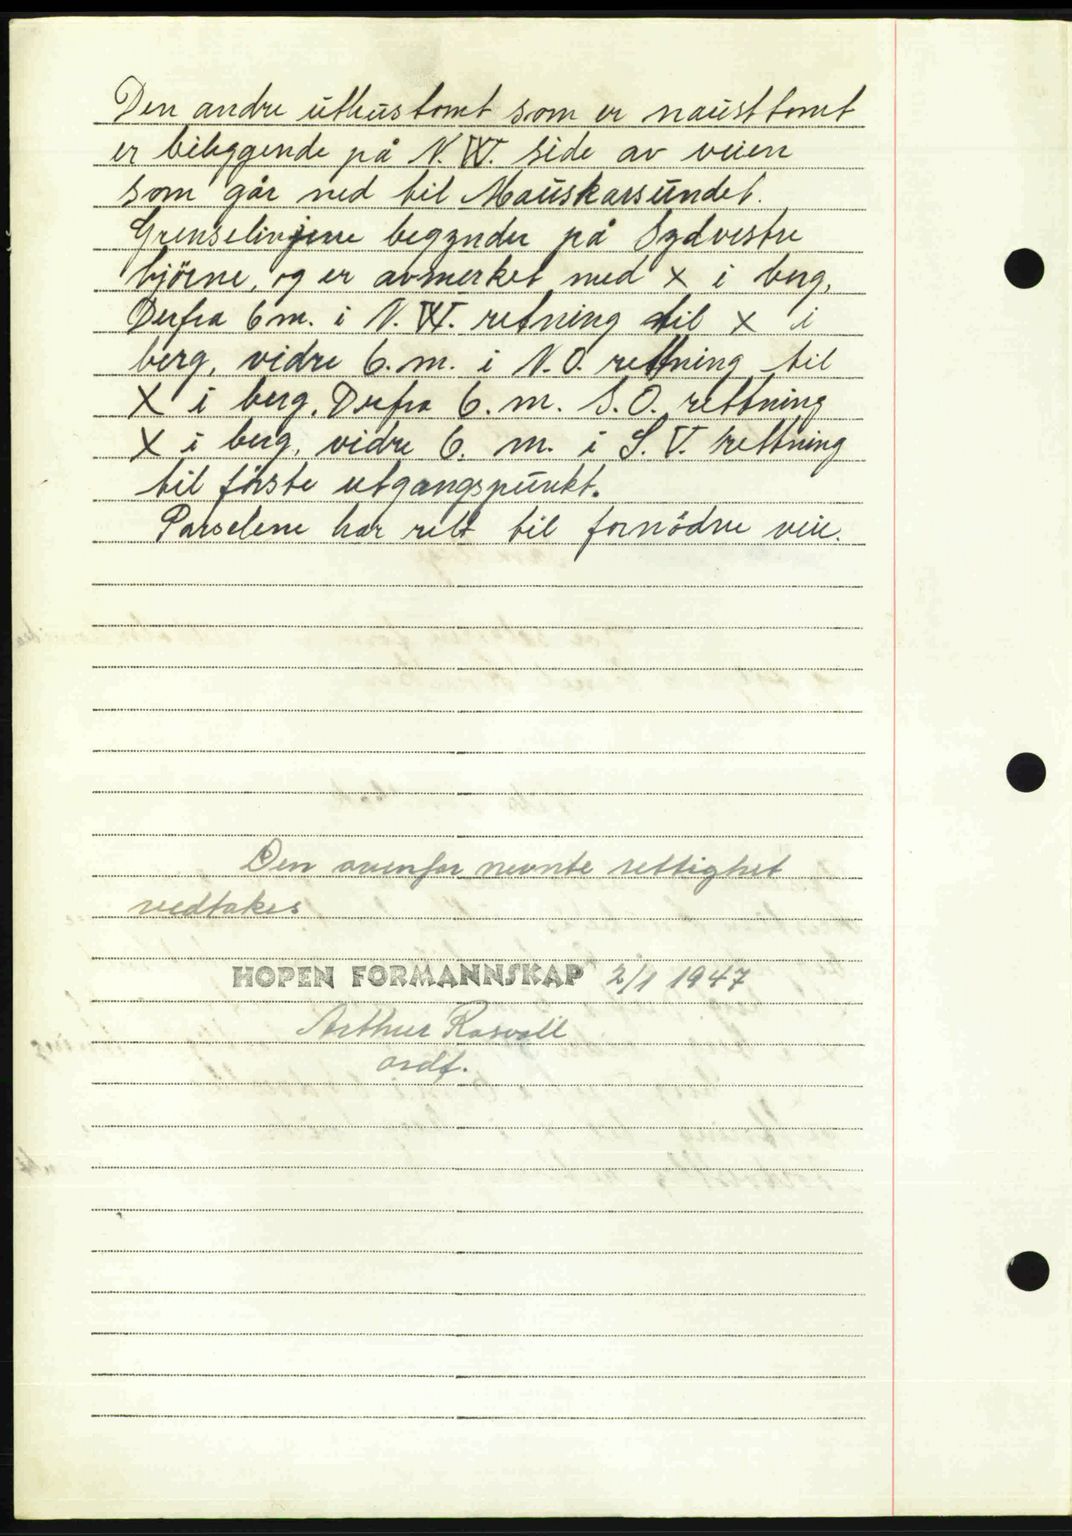 Den andre uthustomt som er nausttomt
er beliggende på N.W. side av veien
som går ned til Mauskarsundet.
Grenselinjene begynder på Sydvestre
hjörne, og er avmerket med x i berg,
Derfra 6 m. i N.W. retning til x i
berg, vidre 6. m. i N.O. rettning til
X i berg, Derfra 6. m. S.O. rettning
X i berg, vidre 6. m. i S.V. rettning
til förste utgangspunkt.
Parselene har rett til fornödne veie.
Den ovenfor nevnte rettighet
vedtakes
HOPEN FORMANNSKAP 2/1 1947
Arthur Rosvoll
ordf.